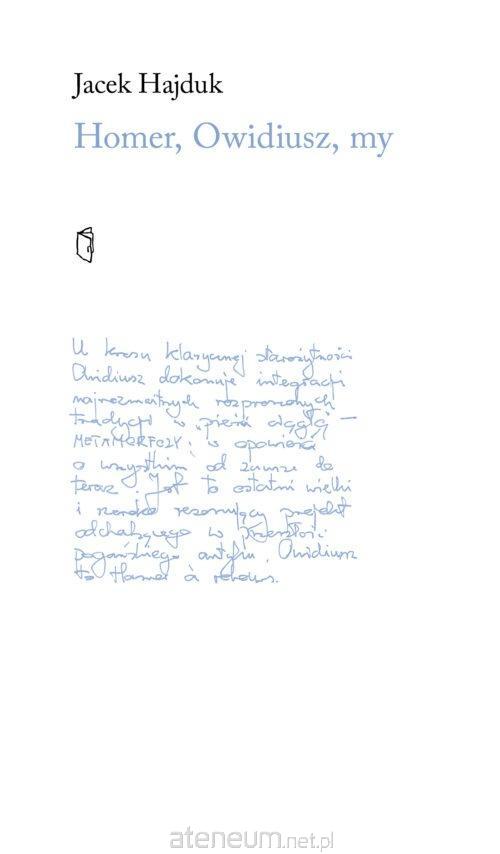 Jacek Hajduk
Homer, Owidiusz, my
U kresu klasycznej starożytności
Owidiusz dokonuje integracji
najrozmaitszych rozproszonych
tradycji w „pieśń ciągłą" —
METAMORFOZY; w opowieść
o wszystkim od zawsze do
teraz. Jest to ostatni wielki
i szeroko rezonujący projekt
odchodzącego w przeszłość
pogańskiego antyku. Owidiusz
to Homer à rebours.
ateneum.net.pl